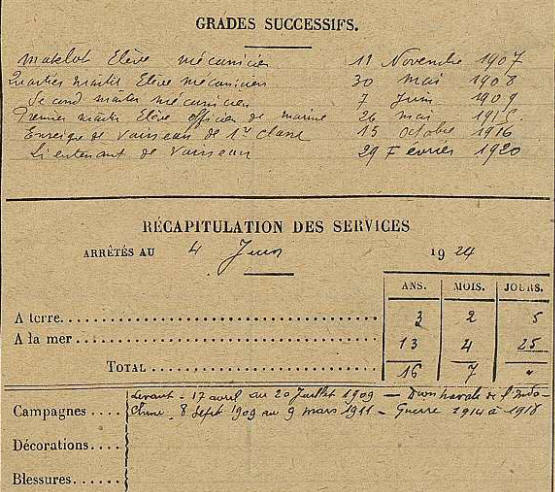 GRADES SUCCESSIFS.
Matelot Elève mécanicien 11 Novembre 1907
Quartier maitre Elève mécanicien 30 mai 1908
Second maitre mécanicien 7 Juin 1909
Premier maitre Elève officier de marine 26 mai
Enseigne de Vaisseau de 1re classe 15 octobre 1916
Lieutenant de Vaisseau 29 Février 1920
RÉCAPITULATION DES SERVICES
ARRÊTÉS AU 4 Juin 1924
ANS. MOIS. JOURS.
A terre 3 2 5
A la mer 13 4 25
TOTAL 16 7 "
Levant : 17 avril au 20 Juillet 1909 — Divon navale de l'Indo-
Campagnes Chine. 8 Sept 1909 au 9 mars 1911 — Guerre 1914 à 1918
Décorations
Blessures